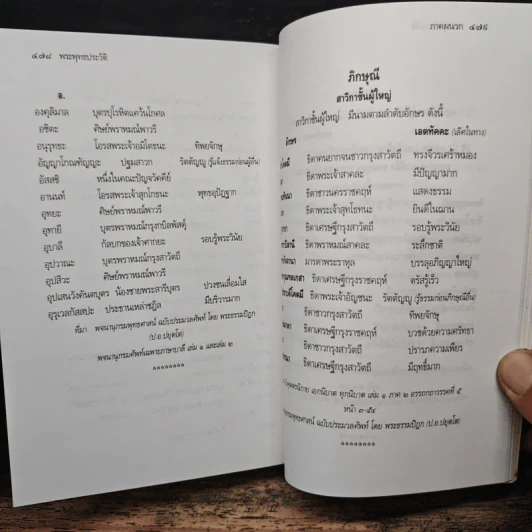 ๔๗๘ พระพุทธประวัติ
อ.
องคุลิมาล บุตรปุโรหิตแคว้นโกศล
อชิตะ ศิษย์พราหมณ์พาวรี
อนุรุทธะ โอรสพระเจ้าอมิโตทนะ ทิพยจักษุ
อัญญาโกณฑัญญะ ปฐมสาวก รัตตัญญู (รู้แจ้งธรรมก่อนผู้อื่น)
อัสสชิ หนึ่งในคณะปัญจวัคคีย์
อานนท์ โอรสพระเจ้าสุกโกธนะ พุทธอุปัฏฐาก
อุทยะ ศิษย์พราหมณ์พาวรี
อุทายี บุตรพราหมณ์กรุงกบิลพัสดุ์
อุบาลี กัลบกของเจ้าศากยะ รอบรู้พระวินัย
อุปวาณะ บุตรพราหมณ์กรุงสาวัตถี
อุปสีวะ ศิษย์พราหมณ์พาวรี
อุปเสนวังคันตบุตร น้องชายพระสารีบุตร ปวงชนเลื่อมใส
อุรุเวลกัสสปะ ประธานเหล่าชฎิล มีบริวารมาก
ที่มา พจนานุกรมพุทธศาสน์ ฉบับประมวลศัพท์ โดย พระธรรมปิฎก
(ป.อ.ปยุตโต)
พจนานุกรมศัพท์เฉพาะภาษาบาลี เล่ม ๑ และเล่ม ๒
********
ภาคผนวก ๔๗๙
ภิกษุณี
สาวิกาชั้นผู้ใหญ่
สาวิกาชั้นผู้ใหญ่ มีนามตามลำดับอักษร ดังนี้
เอตทัคคะ (เลิศในทาง)
ธิดาคนยากจนชาวกรุงสาวัตถี ทรงจีวรเศร้าหมอง
ธิดาพระเจ้าสาคละ มีปัญญามาก
ธิดาชาวนครราชคฤห์ แสดงธรรม
ธิดาพระเจ้าสุทโธทนะ ยินดีในฌาน
ธิดาเศรษฐีกรุงสาวัตถี รอบรู้พระวินัย
ธิดาพราหมณ์สาคละ ระลึกชาติ
มารดาพระราหุล บรรลุอภิญญาใหญ่
ธิดาเศรษฐีกรุงราชคฤห์ ตรัสรู้เร็ว
ธิดาพระเจ้าอัญชนะ รัตตัญญู (รู้ธรรมก่อนภิกษุณีอื่น)
ธิดาชาวกรุงสาวัตถี ทิพยจักษุ
ธิดาเศรษฐีกรุงราชคฤห์ บวชด้วยความศรัทธา
ธิดาชาวกรุงสาวัตถี ปรารภความเพียร
ธิดาเศรษฐีกรุงสาวัตถี มีฤทธิ์มาก
เอกนิบาต ทุกนิบาต เล่ม ๑ ภาค ๒ อรรถกถาวรรคที่ ๕
หน้า ๓-๕๔
ฉบับประมวลศัพท์ โดย พระธรรมปิฎก (ป.อ.ปยุตโต)
********